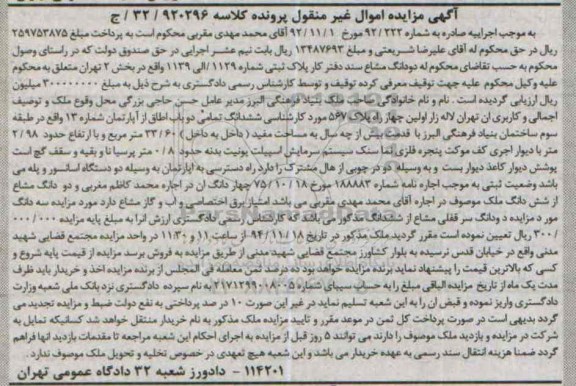 آگهی مزایده اموال غیر منقول پرونده کلاسه ۹۲۰۲۹۶ / ۳۲ / ج
به موجب اجرائیه صادره به شماره ۹۲/۲۲۲ مورخ ۹۲/۱۱/۱ آقای محمد مهدی مقربی محکوم است به پرداخت مبلغ ۲۵۹۷۵۳۸۷۵
ریال در حق محکوم له آقای علیرضا شریعتی و مبلغ ۱۳۴۸۷۶۹۳ ریال بابت نیم عشر اجرایی در حق صندوق دولت که در راستای وصول
محکوم به حسب تقاضای محکوم له دودانگ مشاع سند دفتر کار پلاک ثبتی شماره ۱۱۲۹/الی ۱۱۳۹ واقع در بخش ۲ تهران متعلق به محکوم
علیه وکیل محکوم علیه جهت توقیف معرفی کرده توقیف و توسط کارشناس رسمی دادگستری به شرح ذیل به مبلغ ۳۰۰۰۰۰۰۰۰ میلیون
ریال ارزیابی گردیده است . نام و نام خانوادگی صاحب ملک بنیاد فرهنگی البرز مدیر عامل حسن حاجی بزرگی محل وقوع ملک و توضیف
اجمالی و کاربری ان تهران لاله زار اولین چهار راه پلاک ۵۶۷ مورد کارشناسی ششدانگ تمامی دو باب اطاق از آپارتمان شماره ۱۳ واقع در طبقه
سوم ساختمان بنیاد فرهنگی البرز با قدمت بیش از چه سال به مساحت مفید ( داخل به داخل ) ۳۳/۶۰ متر مربع و با ارتفاع حدود ۲/۹۸
متر با دیوار اجری کف موکت پنجره فلزی نما سنگ سیستم سرمایش اسپیلت یونیت بدنه حدود ۰/۸ متر پرسیا تا و بقیه و سقف گچ است
پوشش دیوار کاغذ دیوار بست و به وسیله دو در چوبی از هال مشترک را دارد راه دسترسی به اپارتمان به وسیله دو دستگاه اسانسور و پله می
باشد وضعیت ثبتی به موجب اجاره نامه شماره ۱۸۸۸۸۳ مورخ ۷۵/۱۰/۱۸ چهار دانگ ان در اجاره محمد کاظم مقربی و دو دانگ مشاع
از شش دانگ ملک موصوف در اجاره آقای محمد مهدی مقربی می باشد امتیاز برق اختصاصی و اب و گاز مشاع دارد مورد مزایده سه دانگ
مور د مزایده دودانگ سر قفلی مشاع از ششدانگ مذکور می باشد که کارشناس رسمی دادگستری ارزش انرا به مبلغ پایه مزایده ۰۰۰/۰۰۰
/۳۰۰ ریال تعیین نموده است مقرر گردید ملک مذکور در تاریخ ۹۴/۱۱/۱۸ از ساعت ۱۱ و ۱۱:۳۰ در واحد مزایده مجتمع قضایی شهید
مدنی واقع در خیابان قدس نرسیده به بلوار کشاورز مجتمع قضایی شهید مدنی از طریق مزایده به فروش برسد مزایده از قیمت پایه شروع و
کسی که بالاترین قیمت را پیشنهاد نماید برنده مزایده خواهد بود ده درصد ثمن معامله فی المجلس از برنده مزایده اخذ و خریدار باید ظرف
مدت یک ماه از تاریخ مزایده الباقی مبلغ را به حساب سیبای شماره ۲۱۷۱۲۹۹۰۰۸۰۰۵ به نام سپرده دادگستری نزد بانک ملی شعبه وزارت
دادگستری واریز نموده و قبض ان را به این شعبه تسلیم نماید در غیر این صورت ۱۰ در صد پرداختی به نفع دولت ضبط و مزایده تجدید می
گردد بدیهی است در صورت پرداخت کل ثمن در موعد مقرر و تایید مزایده ملک مذکور به نام خریدار منتقل خواهد شد کسانیکه تمایل به
شرکت در مزایده و بازدید ملک موصوف را دارند می توانند ۵ روز قبل از مزایده به اجرای احکام این شعبه مراجعه تا مقدمات بازدید انها فراهم
گردد ضمنا هزینه انتقال سند رسمی به عهده خریدار می باشد و این شعبه هیچ تعهدی در خصوص تخلیه و تحویل ملک موصوف ندارد .
۱۱۴۲۰۱ - دادورز شعبه ۳۲ دادگاه عمومی تهران